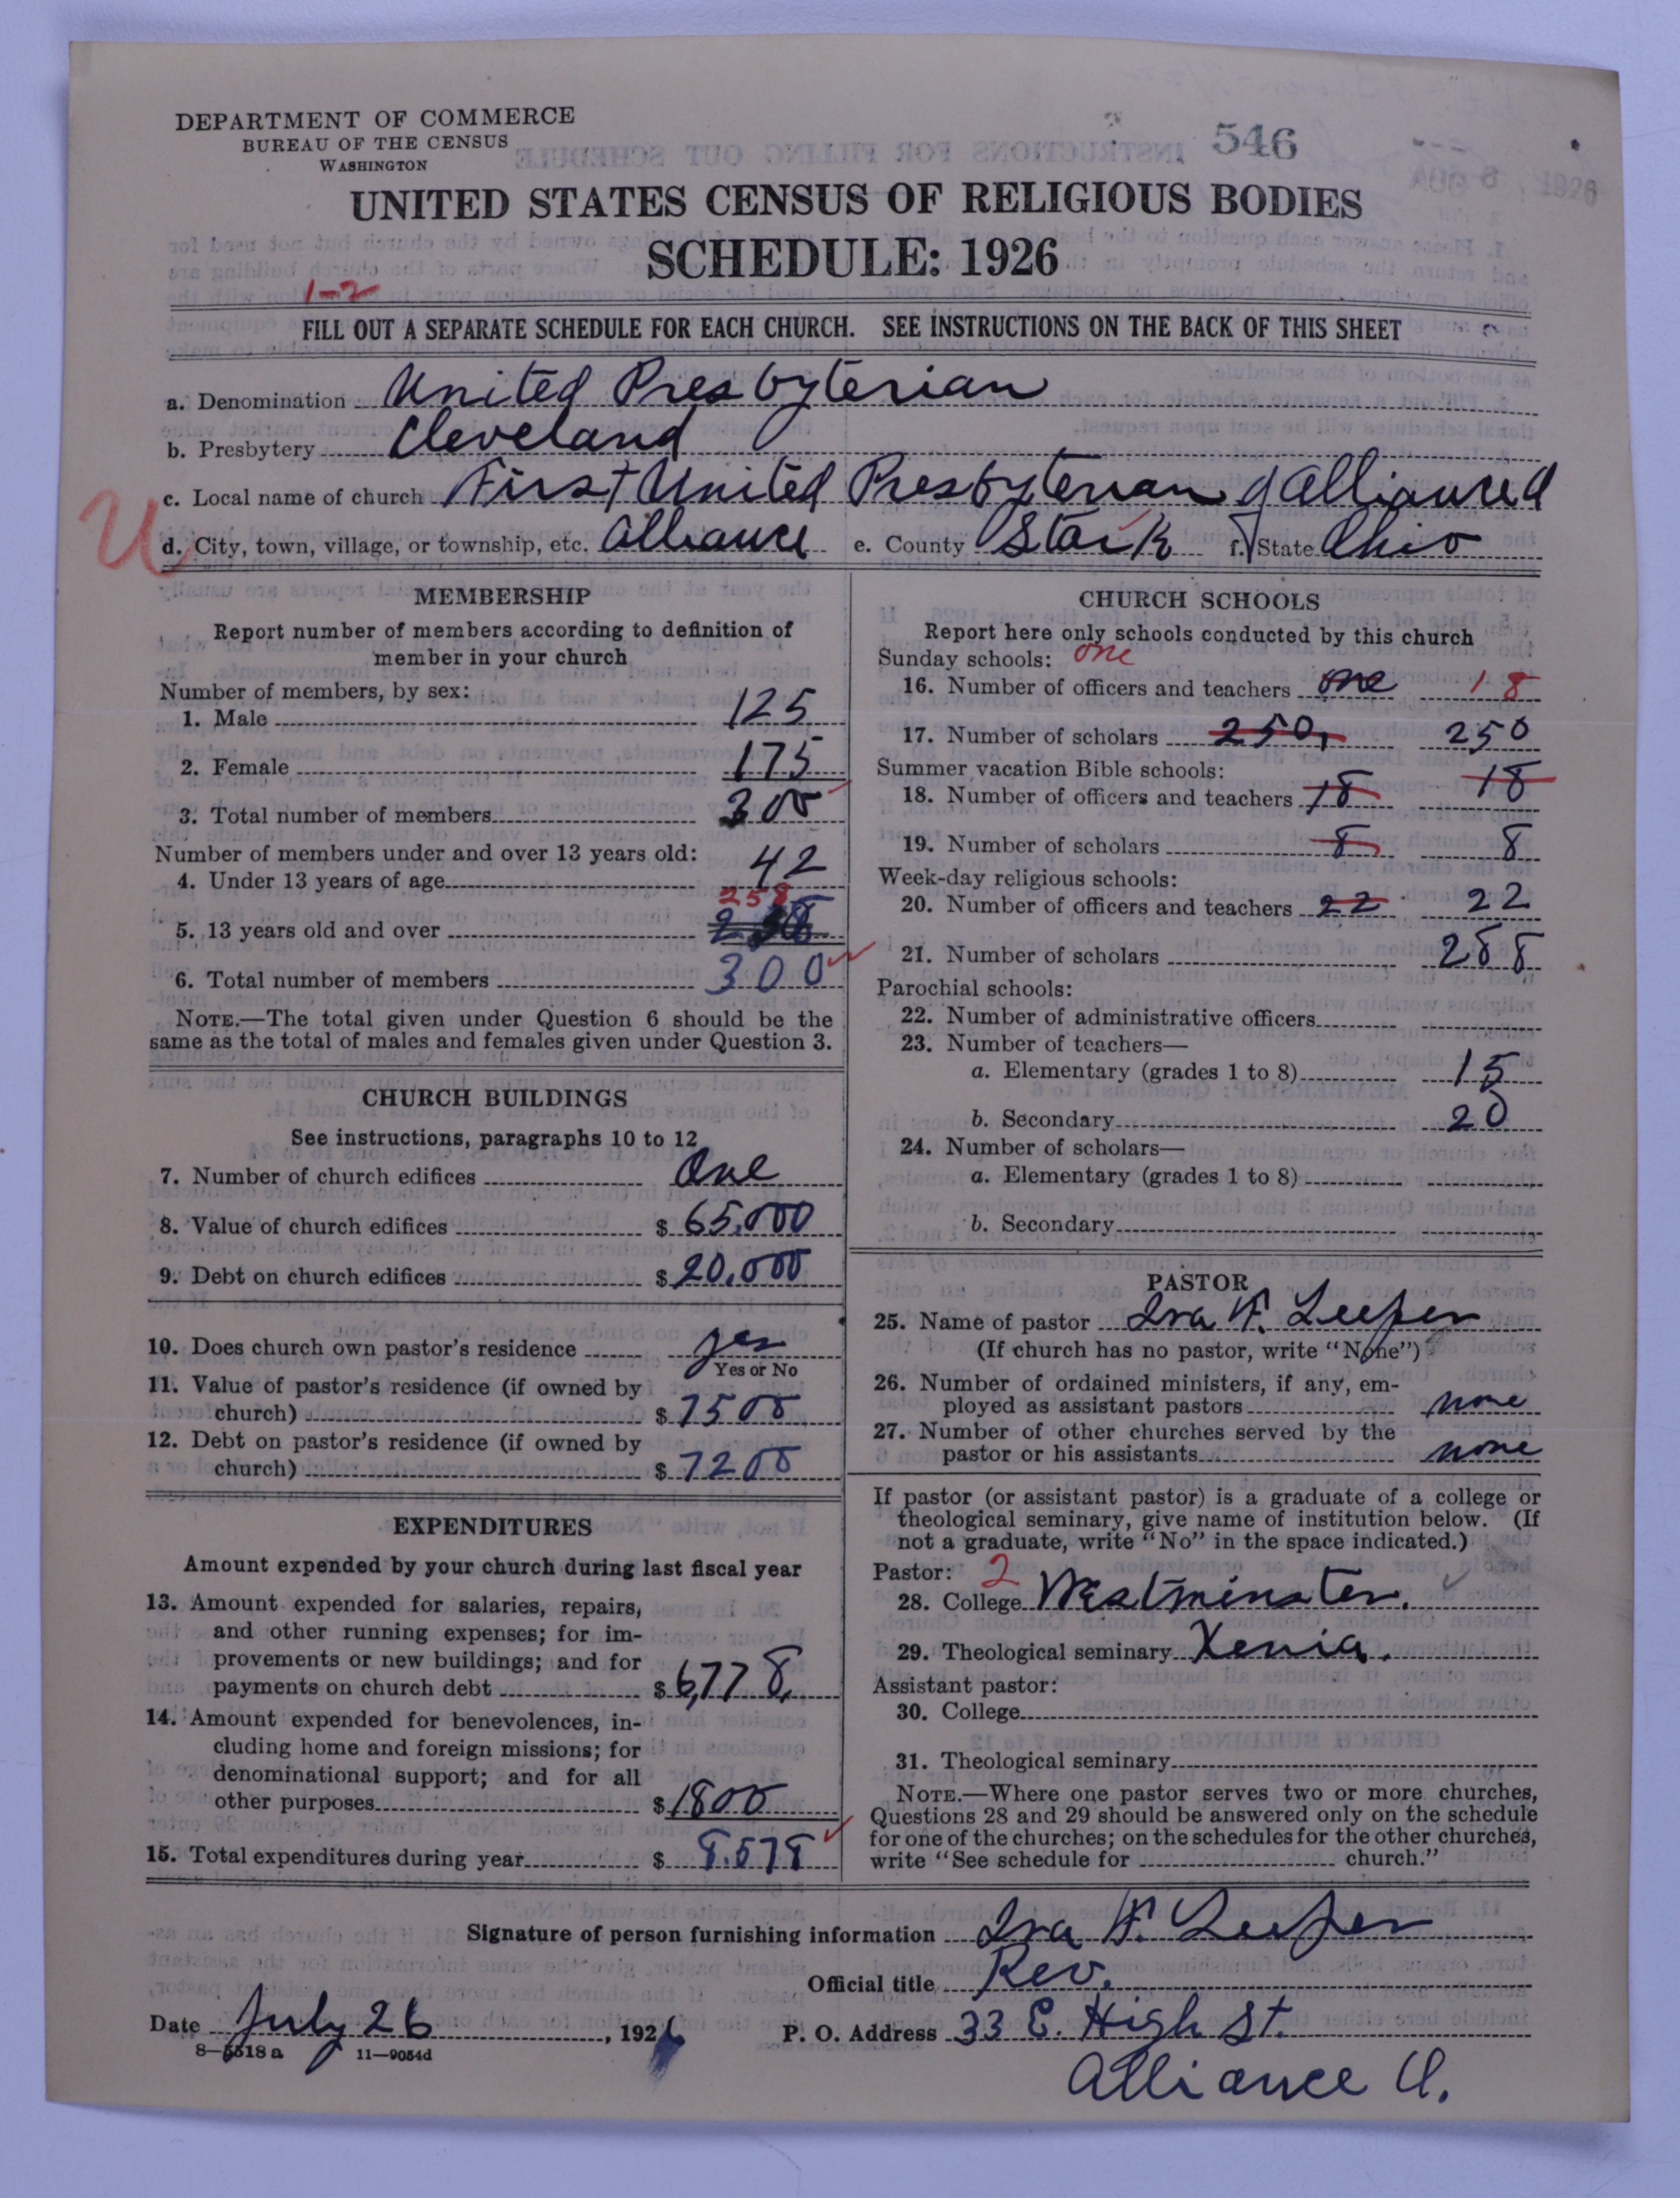 DEPARTMENT OF COMMERCE
BUREAU OF THE CENSUS
WASHINGTON
546
AUG 6 1926
UNITED STATES CENSUS OF RELIGIOUS BODIES
SCHEDULE: 1926
1-2
FILL OUT A SEPARATE SCHEDULE FOR EACH CHURCH. SEE INSTRUCTIONS ON THE BACK OF THIS SHEET
a. Denomination United Presbyterian
b. Presbytery Cleveland
c. Local name of church First United Presbyterian of Alliance
U
d. City, town, village, or township, etc. Alliance e. County Stark f. State Ohio
MEMBERSHIP
Report number of members according to definition of
member in your church
Number of members, by sex:
1. Male 125
2. Female 175
3. Total number of members 300
Number of members under and over 13 years old:
4. Under 13 years of age 42
258
5. 13 years old and over
6. Total number of members 300
NOTE.—The total given under Question 6 should be the
same as the total of males and females given under Question 3.
CHURCH BUILDINGS
See instructions, paragraphs 10 to 12
7. Number of church edifices One
8. Value of church edifices $ 65,000
9. Debt on church edifices $ 20,000
10. Does church own pastor's residence yes
Yes or No
11. Value of pastor's residence (if owned by
church) $ 7500
12. Debt on pastor's residence (if owned by
church) $ 7200
EXPENDITURES
Amount expended by your church during last fiscal year
13. Amount expended for salaries, repairs,
and other running expenses; for im-
provements or new buildings; and for
payments on church debt $ 6,778
14. Amount expended for benevolences, in-
cluding home and foreign missions; for
denominational support; and for all
other purposes $ 1800
15. Total expenditures during year $ 8.578
CHURCH SCHOOLS
Report here only schools conducted by this church
Sunday schools: one
16. Number of officers and teachers one 18
17. Number of scholars 250, 250
Summer vacation Bible schools:
18. Number of officers and teachers 18 18
19. Number of scholars 8 8
Week-day religious schools:
20. Number of officers and teachers 22 22
21. Number of scholars 288
Parochial schools:
22. Number of administrative officers
23. Number of teachers—
a. Elementary (grades 1 to 8) 15
b. Secondary 20
24. Number of scholars—
a. Elementary (grades 1 to 8)
b. Secondary
PASTOR
25. Name of pastor Ira W. Leeper
(If church has no pastor, write "None")
26. Number of ordained ministers, if any, em-
ployed as assistant pastors none
27. Number of other churches served by the
pastor or his assistants none
If pastor (or assistant pastor) is a graduate of a college or
theological seminary, give name of institution below. (If
not a graduate, write "No" in the space indicated.)
Pastor: 2
28. College Westminster.
29. Theological seminary Xenia.
Assistant pastor:
30. College
31. Theological seminary
NOTE.—Where one pastor serves two or more churches,
Questions 28 and 29 should be answered only on the schedule
for one of the churches; on the schedules for the other churches,
write "See schedule for church."
Signature of person furnishing information Ira W. Leeper
Official title Rev.
Date July 26, 1926 P. O. Address 33 E. High St.
8—5518 a 11—9054d
Alliance O.